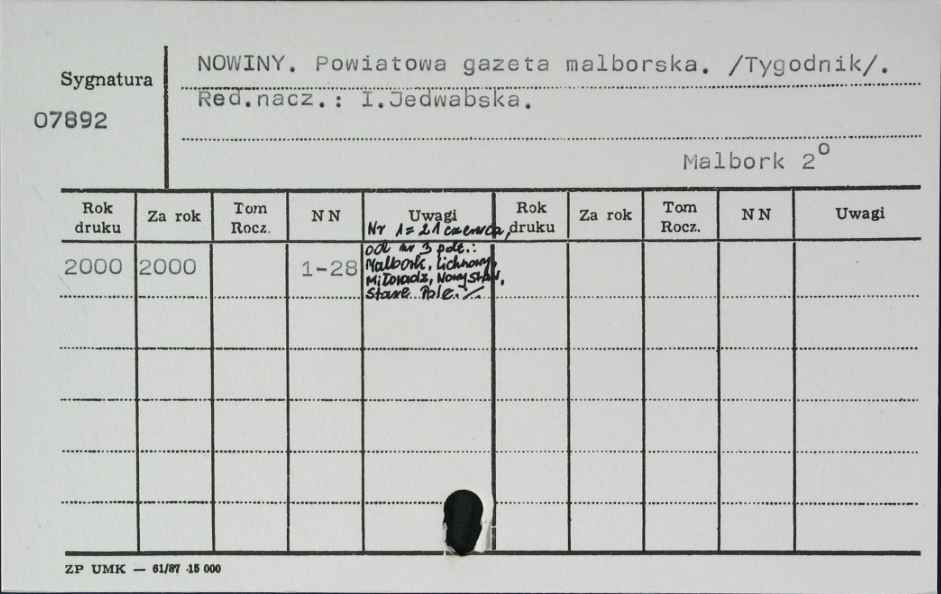 NOWINY. Powiatowa gazeta malborska. /Tygodnik/.
Sygnatura
Red.nacz.: I.Jedwabska.
07892
Malbork 2°
Rok druku Za rok Tom Rocz. NN Uwagi Rok druku Za rok Tom Rocz. NN Uwagi
Nr 1=21 czerwca,
od nr 3 podt.:
2000 2000 1-28 Malbork, Lichnowy,
Miłoradz, Nowy Staw,
Stare Pole./.
ZP UMK — 61/87 -15 000